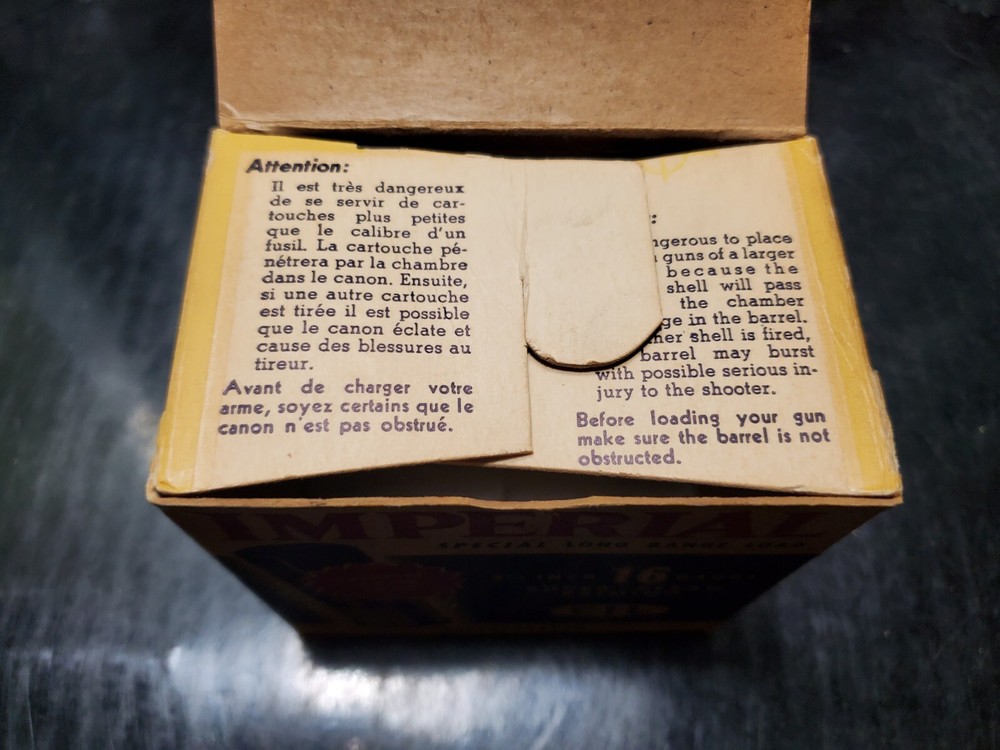 Attention:
Il est très dangereux
de se servir de car-
touches plus petites
que le calibre d'un
fusil. La cartouche pé-
nétrera par la chambre
dans le canon. Ensuite,
si une autre cartouche
est tirée il est possible
que le canon éclate et
cause des blessures au
tireur.
Avant de charger votre
arme, soyez certains que le
canon n'est pas obstrué.
:
ngerous to place
guns of a larger
because the
shell will pass
the chamber
ge in the barrel.
her shell is fired,
barrel may burst
with possible serious in-
jury to the shooter.
Before loading your gun
make sure the barrel is not
obstructed.
IMPERIAL
SPECIAL LONG RANGE LOAD
16